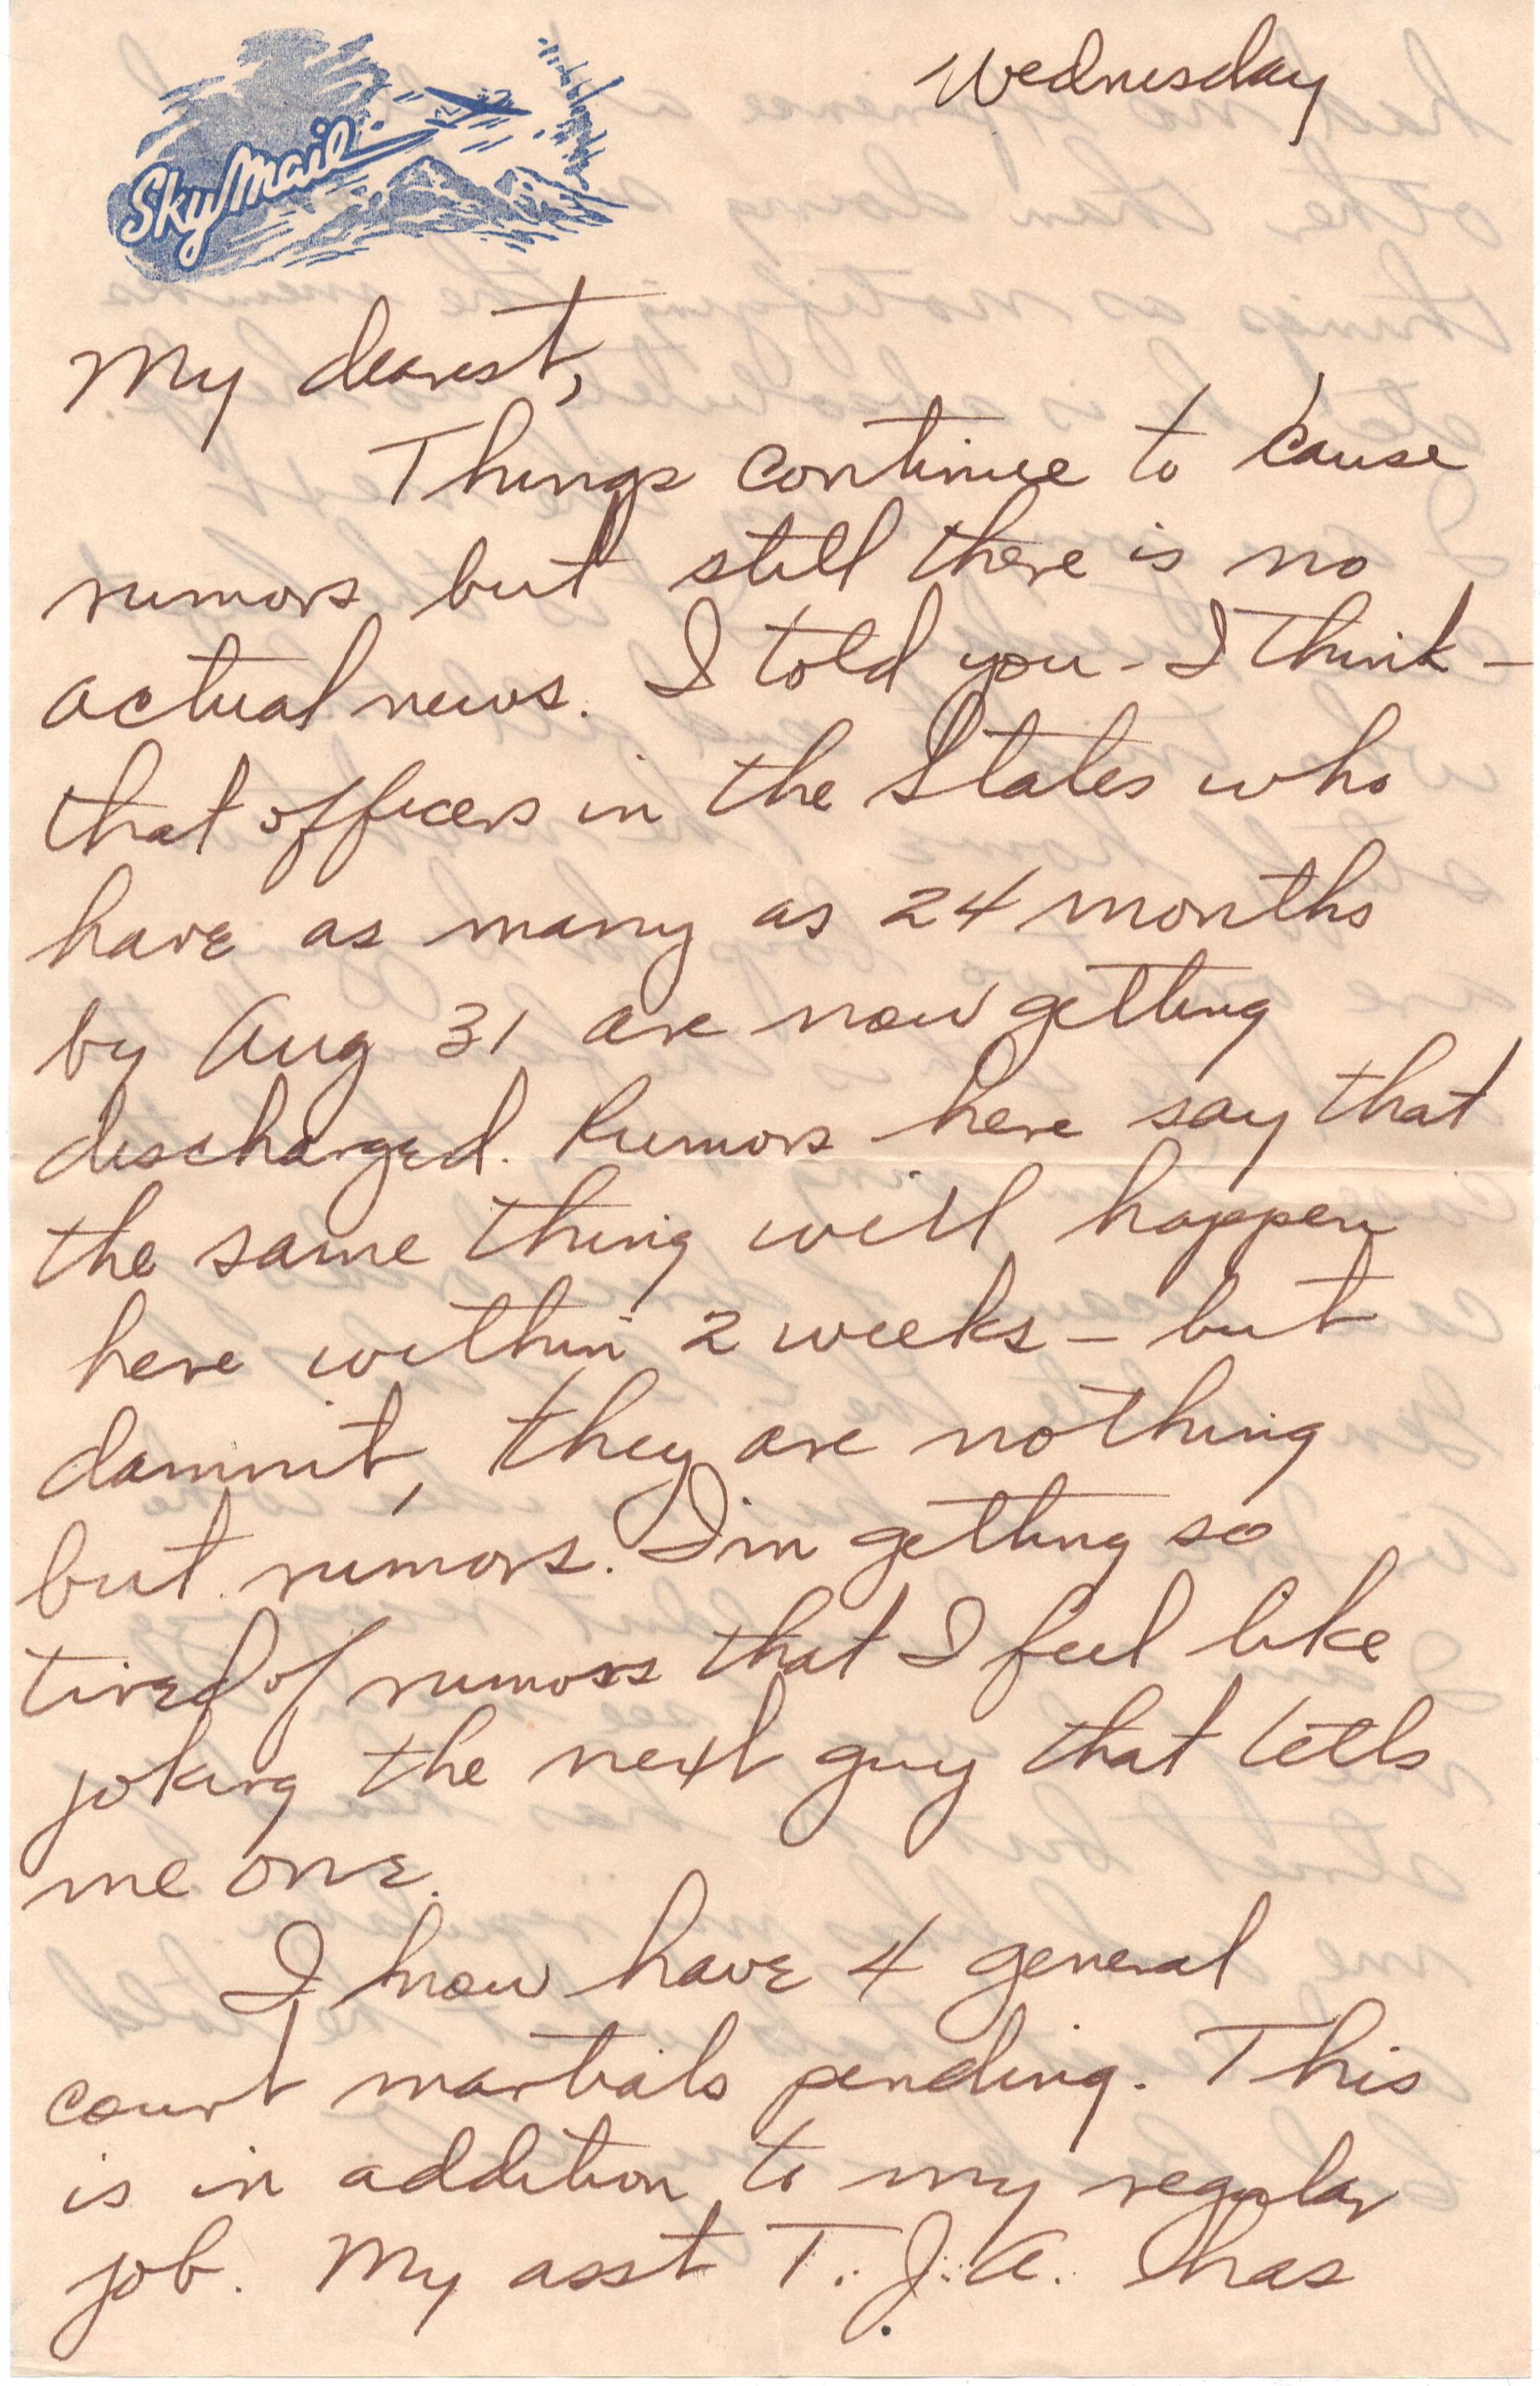 Wednesday
Sky Mail
My dearest,
Things continue to cause
rumors but still there is no
actual news. I told you - I think -
that officers in the States who
have as many as 24 months
by Aug 31 are now getting
discharged. Rumors here say that
the same thing will happen
here within 2 weeks - but
dammit, they are nothing
but rumors. I'm getting so
tired of rumors that I feel like
joking the next guy that tells
me one.
I now have 4 general
court martials pending. This
is in addition to my regular
job. My asst T. J. A. has